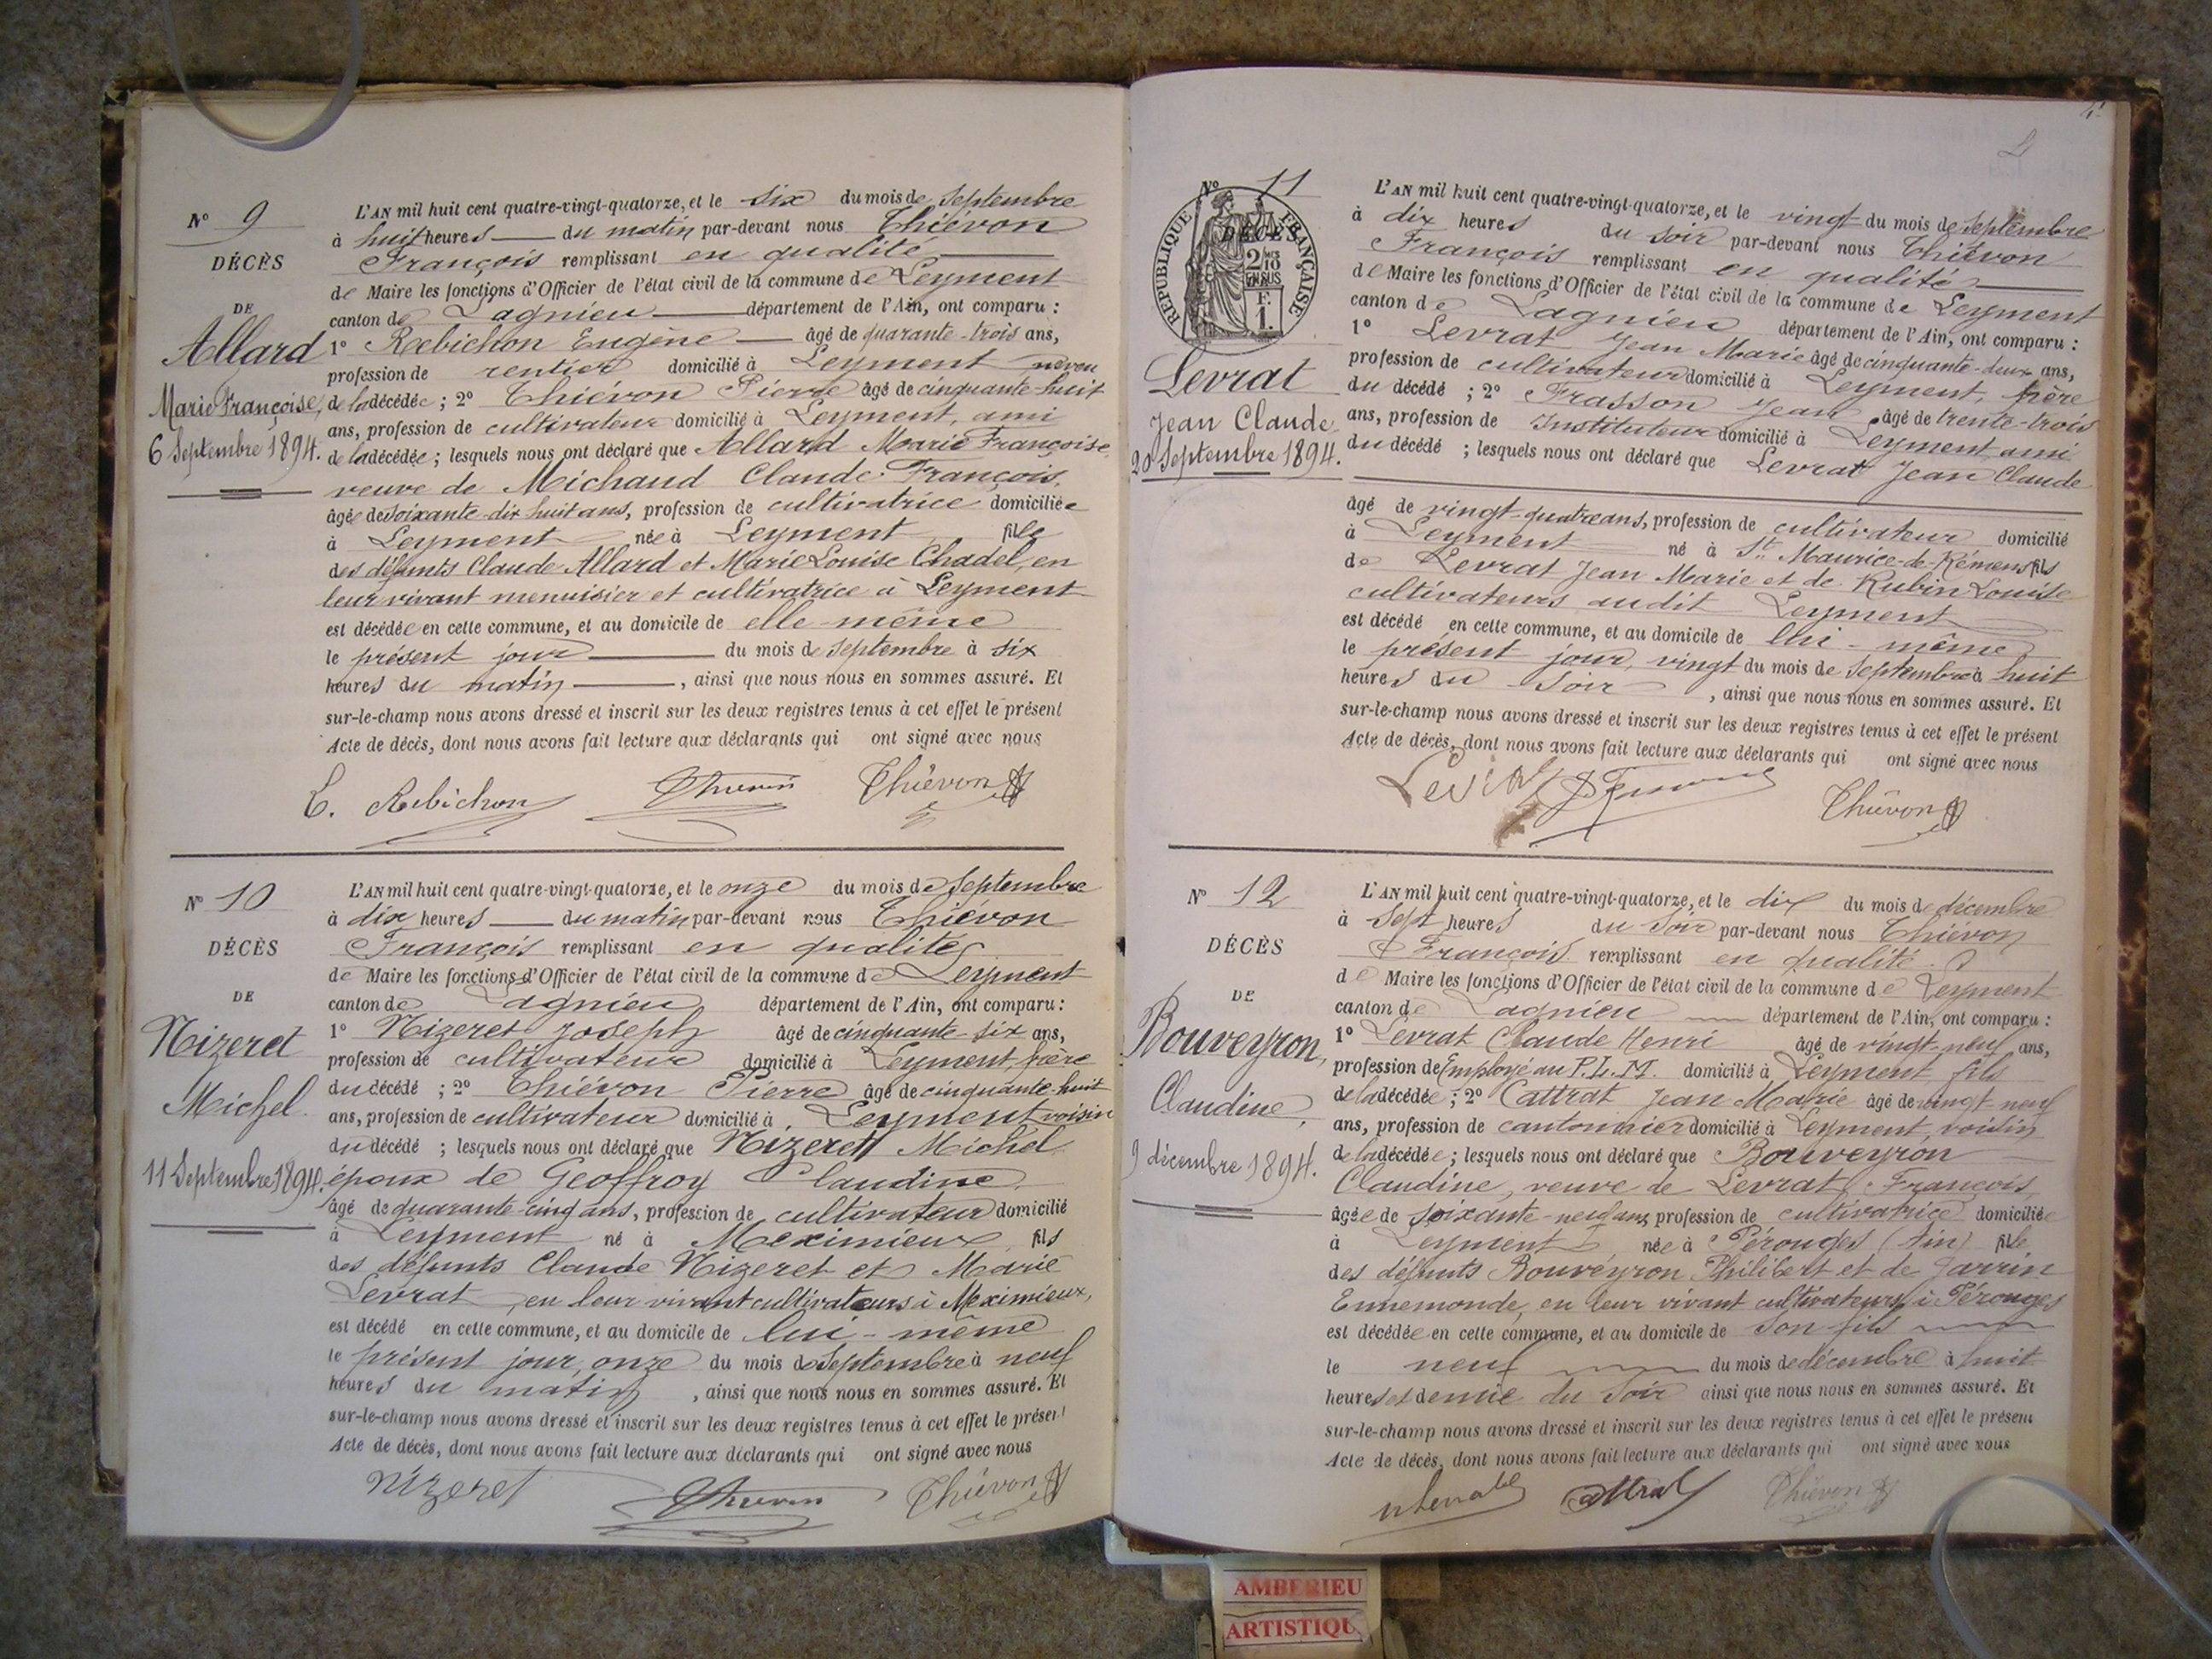 N° 9
DÉCÈS
DE
Allard
Marie Françoise,
6 Septembre 1894.
L'AN mil huit cent quatre-vingt-quatorze, et le six du mois de Septembre
à huit heures du matin par-devant nous Thiévon
François remplissant en qualité
de Maire les fonctions d'Officier de l'état civil de la commune de Leyment
canton de Lagnieu département de l'Ain, ont comparu :
1° Rebichon Eugène âgé de quarante-trois ans,
profession de rentier domicilié à Leyment neveu
de la décédée ; 2° Thiévon Pierre âgé de cinquante-huit
ans, profession de cultivateur domicilié à Leyment, ami
de la décédée ; lesquels nous ont déclaré que Allard Marie Françoise,
veuve de Michaud Claude François,
âgée de soixante-dix huit ans, profession de cultivatrice domiciliée
à Leyment née à Leyment fille
des défunts Claude Allard et Marie Louise Chadel, en
leur vivant menuisier et cultivatrice à Leyment
est décédée en cette commune, et au domicile de elle-même
le présent jour du mois de Septembre à six
heures du matin, ainsi que nous nous en sommes assuré. Et
sur-le-champ nous avons dressé et inscrit sur les deux registres tenus à cet effet le présent
Acte de décès, dont nous avons fait lecture aux déclarants qui ont signé avec nous
E. Rebichon Thievon Thiévon
N° 10
DÉCÈS
DE
Nizeret
Michel
11 Septembre 1894.
L'AN mil huit cent quatre-vingt-quatorze, et le onze du mois de Septembre
à dix heures du matin par-devant nous Thiévon
François remplissant en qualité
de Maire les fonctions d'Officier de l'état civil de la commune de Leyment
canton de Lagnieu département de l'Ain, ont comparu :
1° Nizeret Joseph âgé de cinquante-six ans,
profession de cultivateur domicilié à Leyment, frère
du décédé ; 2° Thiévon Pierre âgé de cinquante-huit
ans, profession de cultivateur domicilié à Leyment voisin
du décédé ; lesquels nous ont déclaré que Nizeret Michel
époux de Geoffroy Claudine,
âgé de quarante-cinq ans, profession de cultivateur domicilié
à Leyment né à Meximieux fils
des défunts Claude Nizeret et Marie
Levrat, en leur vivant cultivateurs à Meximieux,
est décédé en cette commune, et au domicile de lui-même
le présent jour, onze du mois de Septembre à neuf
heures du matin, ainsi que nous nous en sommes assuré. Et
sur-le-champ nous avons dressé et inscrit sur les deux registres tenus à cet effet le présent
Acte de décès, dont nous avons fait lecture aux déclarants qui ont signé avec nous
Nizeret Thievon Thiévon
N° 11
DÉCÈS
RÉPUBLIQUE FRANÇAISE
2/10
EN SUS
F.
1.
Levrat
Jean Claude
20 Septembre 1894.
L'AN mil huit cent quatre-vingt-quatorze, et le vingt du mois de Septembre
à dix heures du soir par-devant nous Thiévon
François remplissant en qualité
de Maire les fonctions d'Officier de l'état civil de la commune de Leyment
canton de Lagnieu département de l'Ain, ont comparu :
1° Levrat Jean Marie âgé de cinquante-deux ans,
profession de cultivateur domicilié à Leyment, père
du décédé ; 2° Frasson Jean âgé de trente-trois
ans, profession de Instituteur domicilié à Leyment ami
du décédé ; lesquels nous ont déclaré que Levrat Jean Claude
âgé de vingt-quatre ans, profession de cultivateur domicilié
à Leyment né à St Maurice-de-Rémens fils
de Levrat Jean Marie et de Rubin Louise
cultivateurs audit Leyment
est décédé en cette commune, et au domicile de lui-même
le présent jour, vingt du mois de Septembre à huit
heures du soir, ainsi que nous nous en sommes assuré. Et
sur-le-champ nous avons dressé et inscrit sur les deux registres tenus à cet effet le présent
Acte de décès, dont nous avons fait lecture aux déclarants qui ont signé avec nous
Levrat Thiévon
N° 12
DÉCÈS
DE
Bouveyron,
Claudine,
9 décembre 1894.
L'AN mil huit cent quatre-vingt-quatorze, et le dix du mois de décembre
à sept heures du soir par-devant nous Thiévon
François remplissant en qualité
de Maire les fonctions d'Officier de l'état civil de la commune de Leyment
canton de Lagnieu département de l'Ain, ont comparu :
1° Levrat Claude Henri âgé de vingt-neuf ans,
profession de Employé au P.L.M. domicilié à Leyment fils
de la décédée ; 2° Cattrat Jean Marie âgé de vingt-neuf
ans, profession de cantonnier domicilié à Leyment, voisin
de la décédée ; lesquels nous ont déclaré que Bouveyron
Claudine, veuve de Levrat François,
âgée de soixante-neuf ans, profession de cultivatrice domiciliée
à Leyment, née à Pérouges (Ain) fille
des défunts Bouveyron Philibert et de Jarrin
Ennemonde, en leur vivant cultivateurs à Pérouges
est décédée en cette commune, et au domicile de son fils
le neuf du mois de décembre à huit
heures et demie du soir ainsi que nous nous en sommes assuré. Et
sur-le-champ nous avons dressé et inscrit sur les deux registres tenus à cet effet le présent
Acte de décès, dont nous avons fait lecture aux déclarants qui ont signé avec nous
Cattrat Thiévon
AMBERIEU
ARTISTIQU